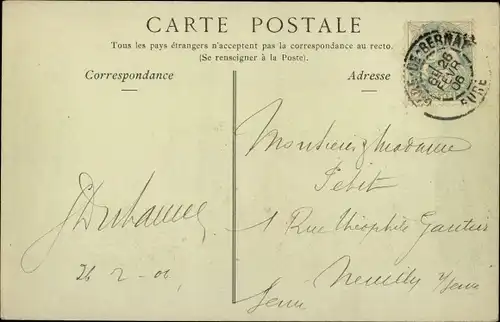 CARTE POSTALE
Tous les pays étrangers n'acceptent pas la correspondance au recto.
(Se renseigner à la Poste).
Correspondance
Adresse
GARE-DE-BERNAY
26
FEVR
06
EURE
Monsieur & Madame
Petit
1 Rue Théophile Gautier
Neuilly s/Seine
Seine
26 2 - 06